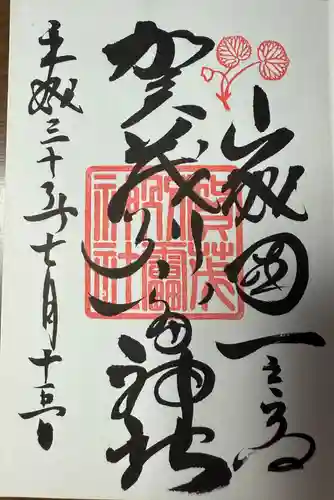 山城国一之宮
賀茂別雷神社
平成三十年七月十五日
賀茂
別雷
神社